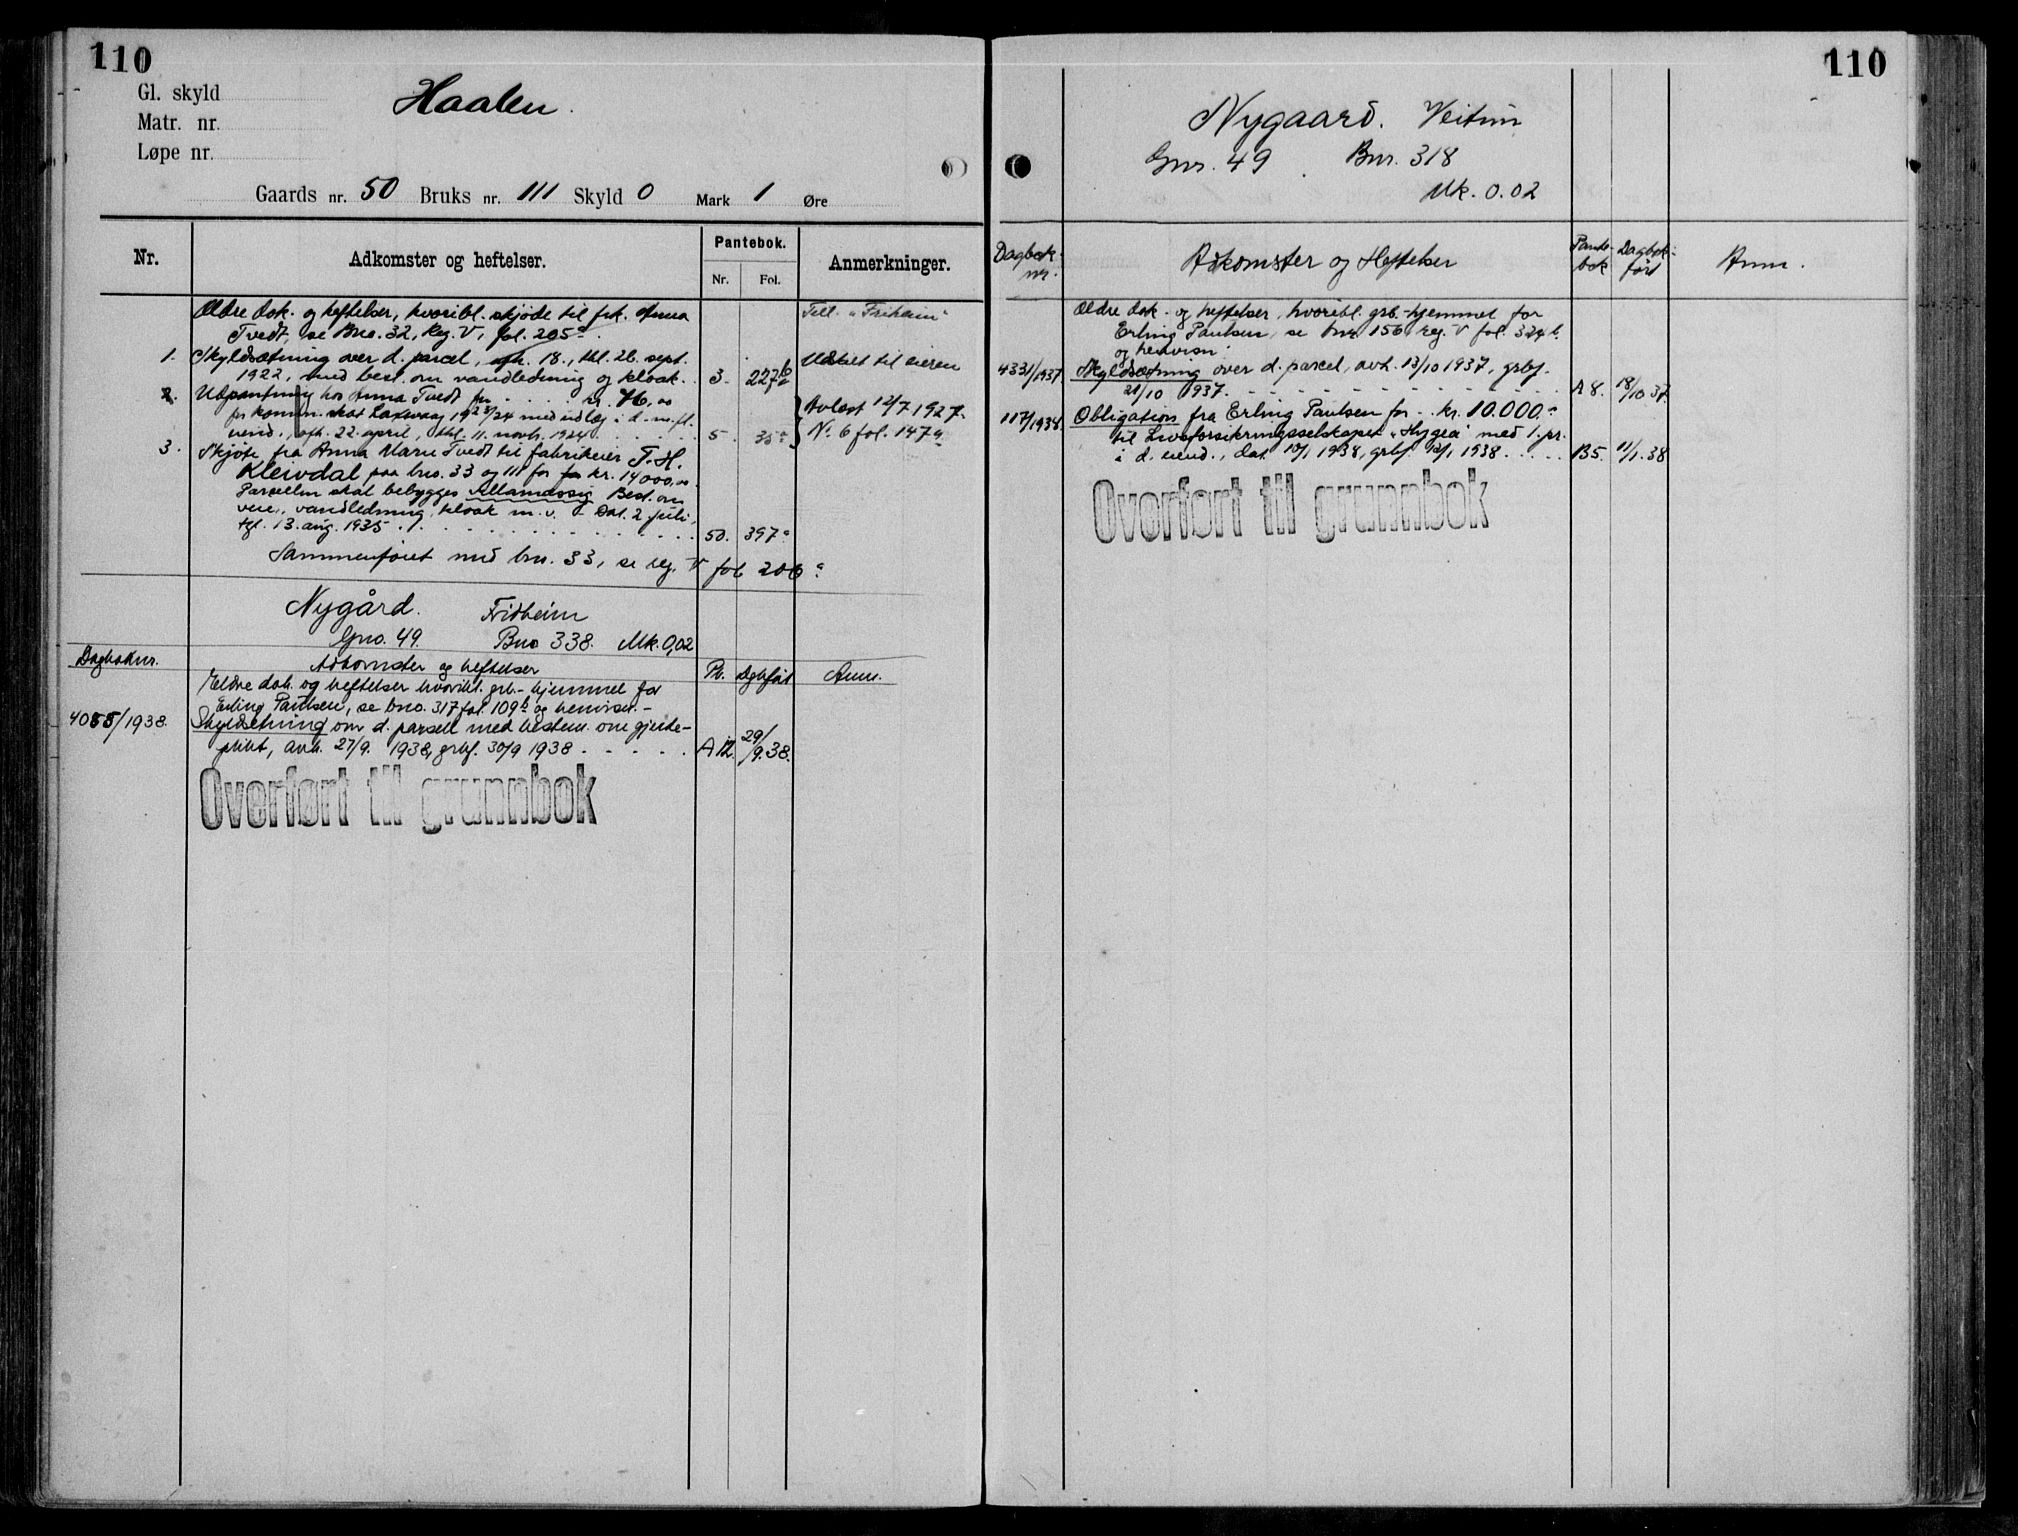 110
Gl. skyld
Matr. nr.
Løpe nr.
Haalen.
Gaards nr. 50 Bruks nr. 111 Skyld 0 Mark 1 Øre
Nr.
Adkomster og heftelser.
Pantebok.
Nr. Fol.
Anmerkninger.
Ældre dok. og heftelser, hvoribl. skjöde til frk. Anna
Tvedt, se Bno. 32, Reg. V, fol. 205a.
Till. "Friheim"
1. Skyldsætning over d. parcel, afh. 18., tbl. 26. sept.
1922, med best. om vandledning og kloak. 3. 227b
Utlaat til eieren
2. Utpantning hos Anna Tvedt for kr. 76,00
for komm. skat Laxevaag 1923/24 med utlæg i d. m. fl.
eiend., afh. 22. april, tbl. 11. novb. 1924 5. 35a
Avlæst 12/7 1927.
No. 6 fol. 147a
3. Skjöte fra Anna Marie Tvedt til fabrikeier T. H.
Kleivdal paa bno. 33 og 111 for kr. 14000,00
Parcellen skal bebygges villamæssig Best. om
vei, vandledning, kloak m.v. - Dat. 2 juli,
tgl. 13. aug. 1935 50. 397a
Sammenføiet med bno. 33, se reg. V fol 206a
Nygård. Fridheim
Gno. 49. Bno 338. Mk. 0,02
Dagboknr.
Adkomster og heftelser
Pb. Dgbført Anm.
Eldre dok. og heftelser hvoribl. grb.-hjemmel for
Erling Paulsen, se bno. 317 fol. 109b og henvisn. -
4055/1938. Skyldsetning over d. parsell med bestem. om gjerde-
plikt, avh. 27/9. 1938, grbf. 30/9 1938 A 12. 29/9.38.
Overført til grunnbok
110
Nygaard. Veitun
Gnr. 49 . Bnr. 318
Mk. 0.02
Dagbok-
nr.
Adkomster og Heftelser
Pante-
bok
Dagbok-
ført
Anm.
Ældre dok. og heftelser, hvoribl. grb.-hjemmel for
Erling Paulsen, se bnr. 156 reg. V fol. 324b.
og henvisn.
4331/1937. Skyldsætning over d. parcel, avh. 13/10 1937, grbf.
21/10 1937. A 8. 18/10 37.
117/1938. Obligation fra Erling Paulsen for kr. 10.000.-
til Livsforsikringsselskapet "Hygea" med 1. pr.
i d. eiend., dat. 10/1 1938, grbf. 12/1 1938 B5. 11/1.38
Overført til grunnbok